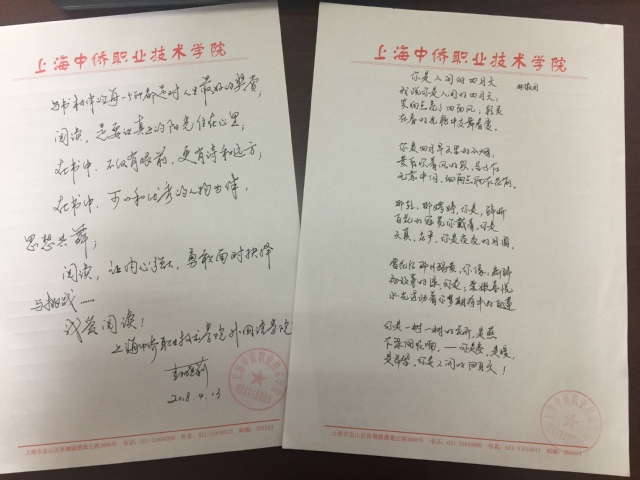 上海中侨职业技术学院
与书相伴的每一个时刻都是对人生最好的奖赏,
阅读,是要让真正的阳光住在心里,
在书中,不仅有眼前,更有诗和远方,
在书中,可以和优秀的人物为伴,
思想共舞,
阅读,让内心强大,勇敢面对抉择
与挑战……
我爱阅读!
上海中侨职业技术学院外国语学院
2018.4.13
上海中侨职业技术学院
你是人间的四月天
我说你是人间的四月天;
笑响点亮了四面风;轻灵
在春的光艳中交舞着变。
你是四月早天里的云烟,
黄昏吹着风的软,星子在
无意中闪,细雨点洒在花前。
那轻,那娉婷,你是,鲜妍
百花的冠冕你戴着,你是
天真,庄严,你是夜夜的月圆。
雪化后那片鹅黄,你像;新鲜
初放芽的绿,你是;柔嫩喜悦
水光浮动着你梦期待中白莲
你是一树一树的花开,是燕
在梁间呢喃,——你是爱,是暖,
是希望,你是人间的四月天!